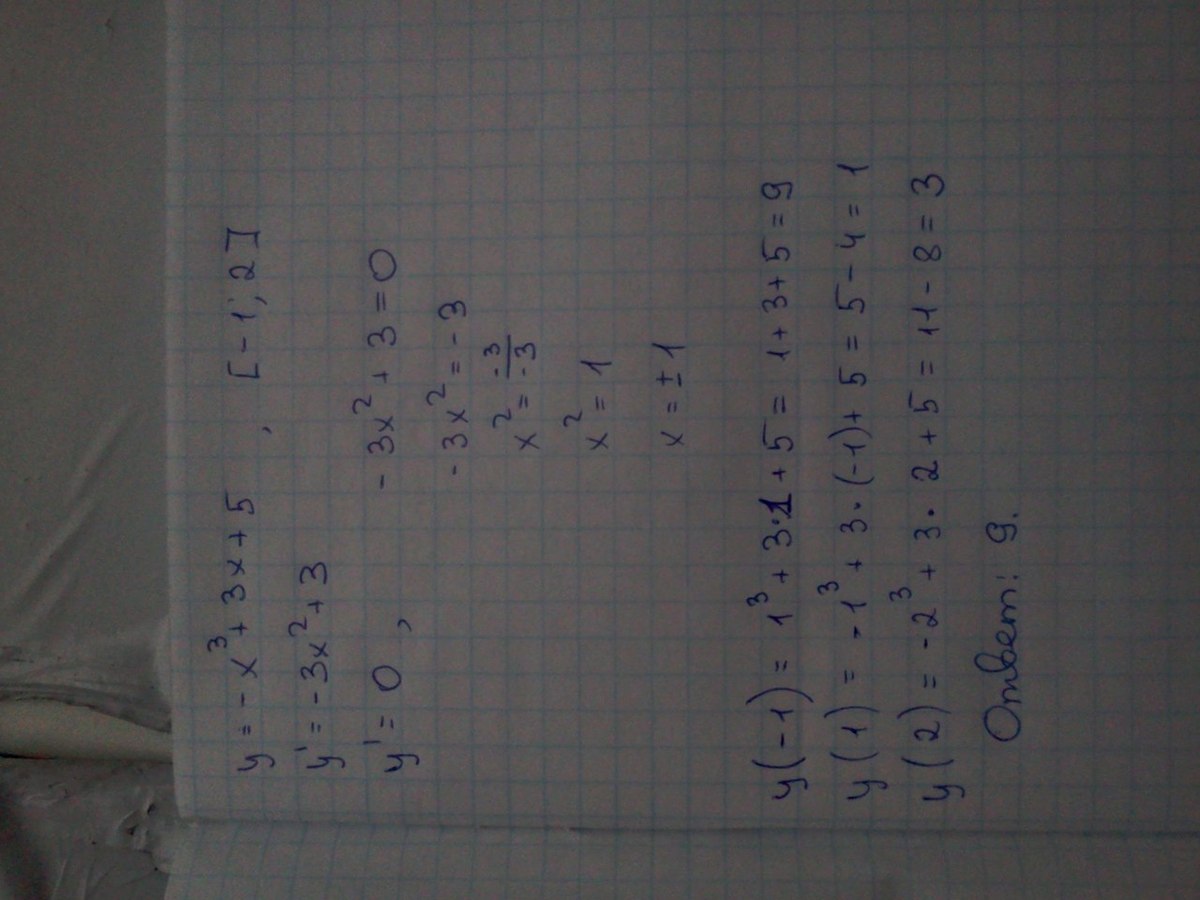 y = -x³ + 3x + 5 , [-1; 2]
y' = -3x² + 3
y' = 0 , -3x² + 3 = 0
-3x² = -3
x² = -3/-3
x² = 1
x = ± 1
y(-1) = 1³ + 3·1 + 5 = 1 + 3 + 5 = 9
y(1) = -1³ + 3·(-1) + 5 = 5 - 4 = 1
y(2) = -2³ + 3·2 + 5 = 11 - 8 = 3
Ответ: 9.